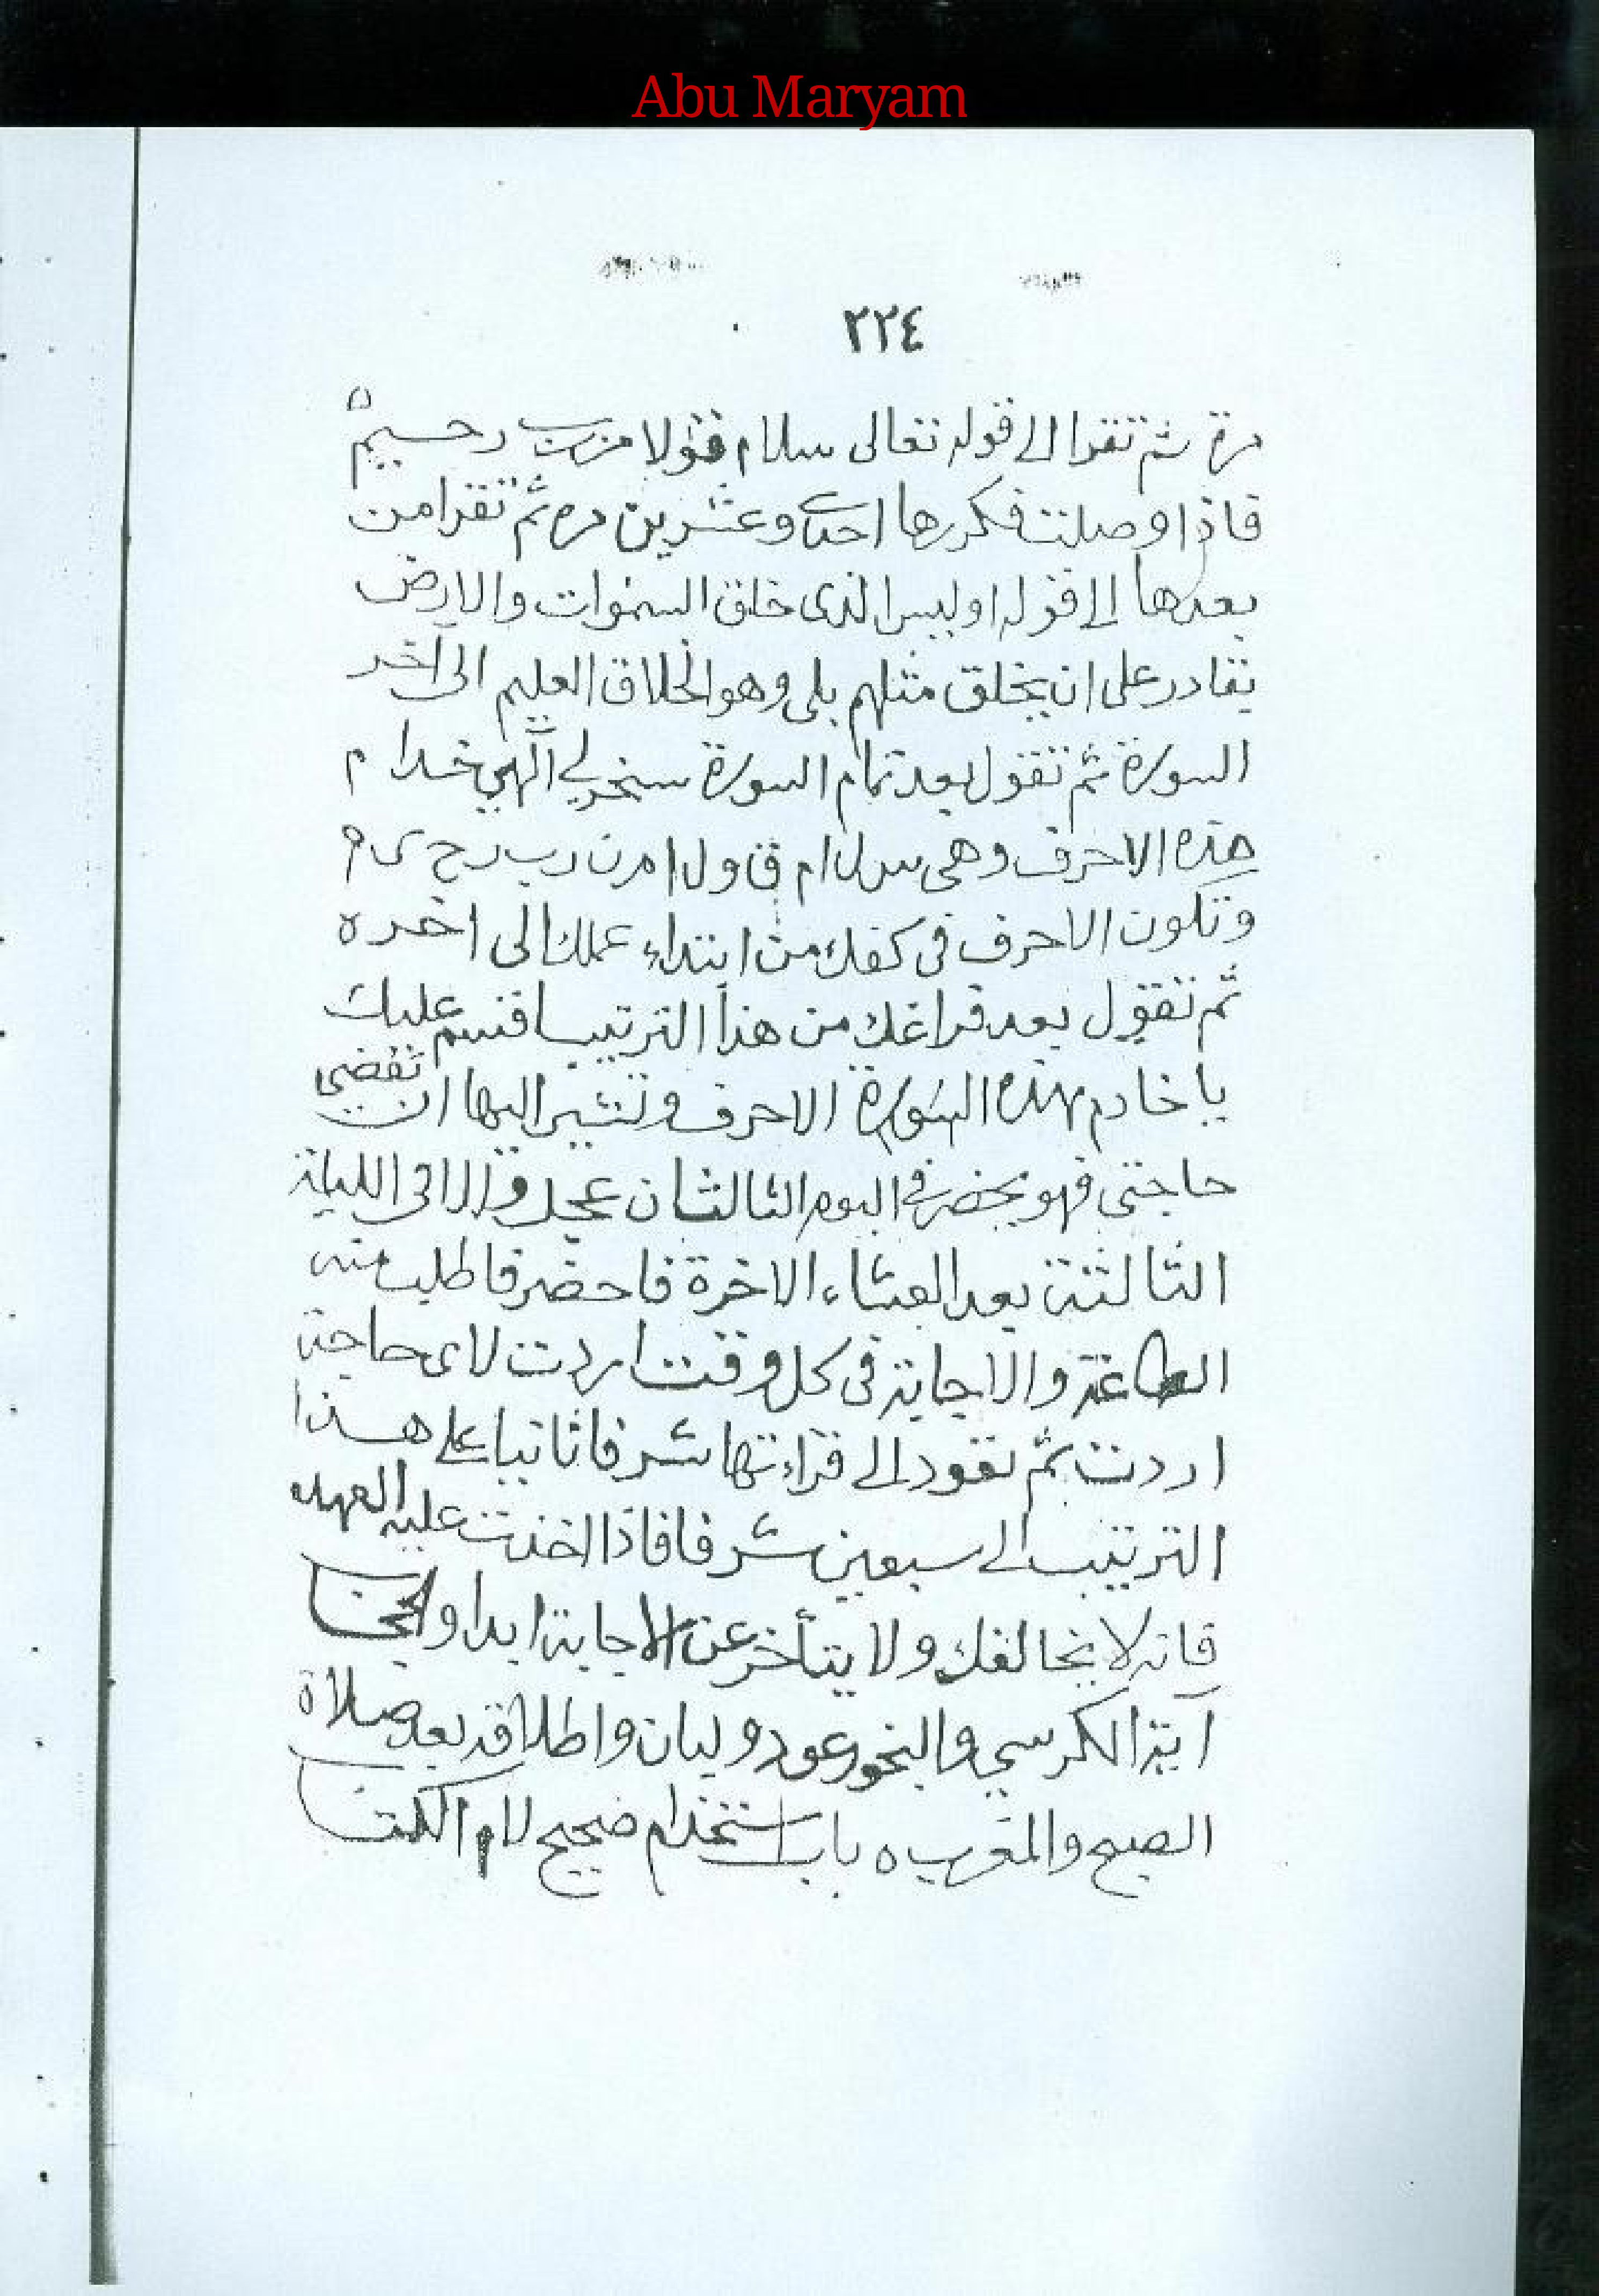 Abu Maryam
٢٢٤
مرة ثم تقرا الى قوله تعالى سلام قولا من رب رحيم
فاذا وصلت فكررها احدى وعشرين مره ثم تقرا من
بعدها الى قوله اوليس الذى خلق السموات والارض
بقادر على ان يخلق مثلهم بلى وهو الخلاق العليم الى آخر
السورة ثم تقول بعد تمام السورة سخر لي الهي خدام
هذه الاحرف وهى س ل ا م ق و ل ا م ن ر ب ر ح ى م
وتكون الاحرف فى كفك من ابتداء عملك الى اخره
ثم تقول بعد فراغك من هذا الترتيب اقسم عليك
يا خادم بهذه السورة الاحرف وتشير اليها ان تقضى
حاجتى فهو يحضر فى اليوم الثالث ان عجل والا فى الليلة
الثالثة بعد العشاء الاخرة فاحضر فاطلب منه
الطاعة والاجابة فى كل وقت اردت لاى حاجة
اردت ثم تعود الى قراءتها شرفا ثانيا على هذا
الترتيب الى سبعين شرفا فاذا اخذت عليه العهد
فانه لا يخالفك ولا يتأخر عن الاجابة ابدا والحجاب
آية الكرسي والبخور عود ولبان واطلاقه بعد صلاة
الصبح والمغرب ه باب استخدام صحيح لام الكتاب